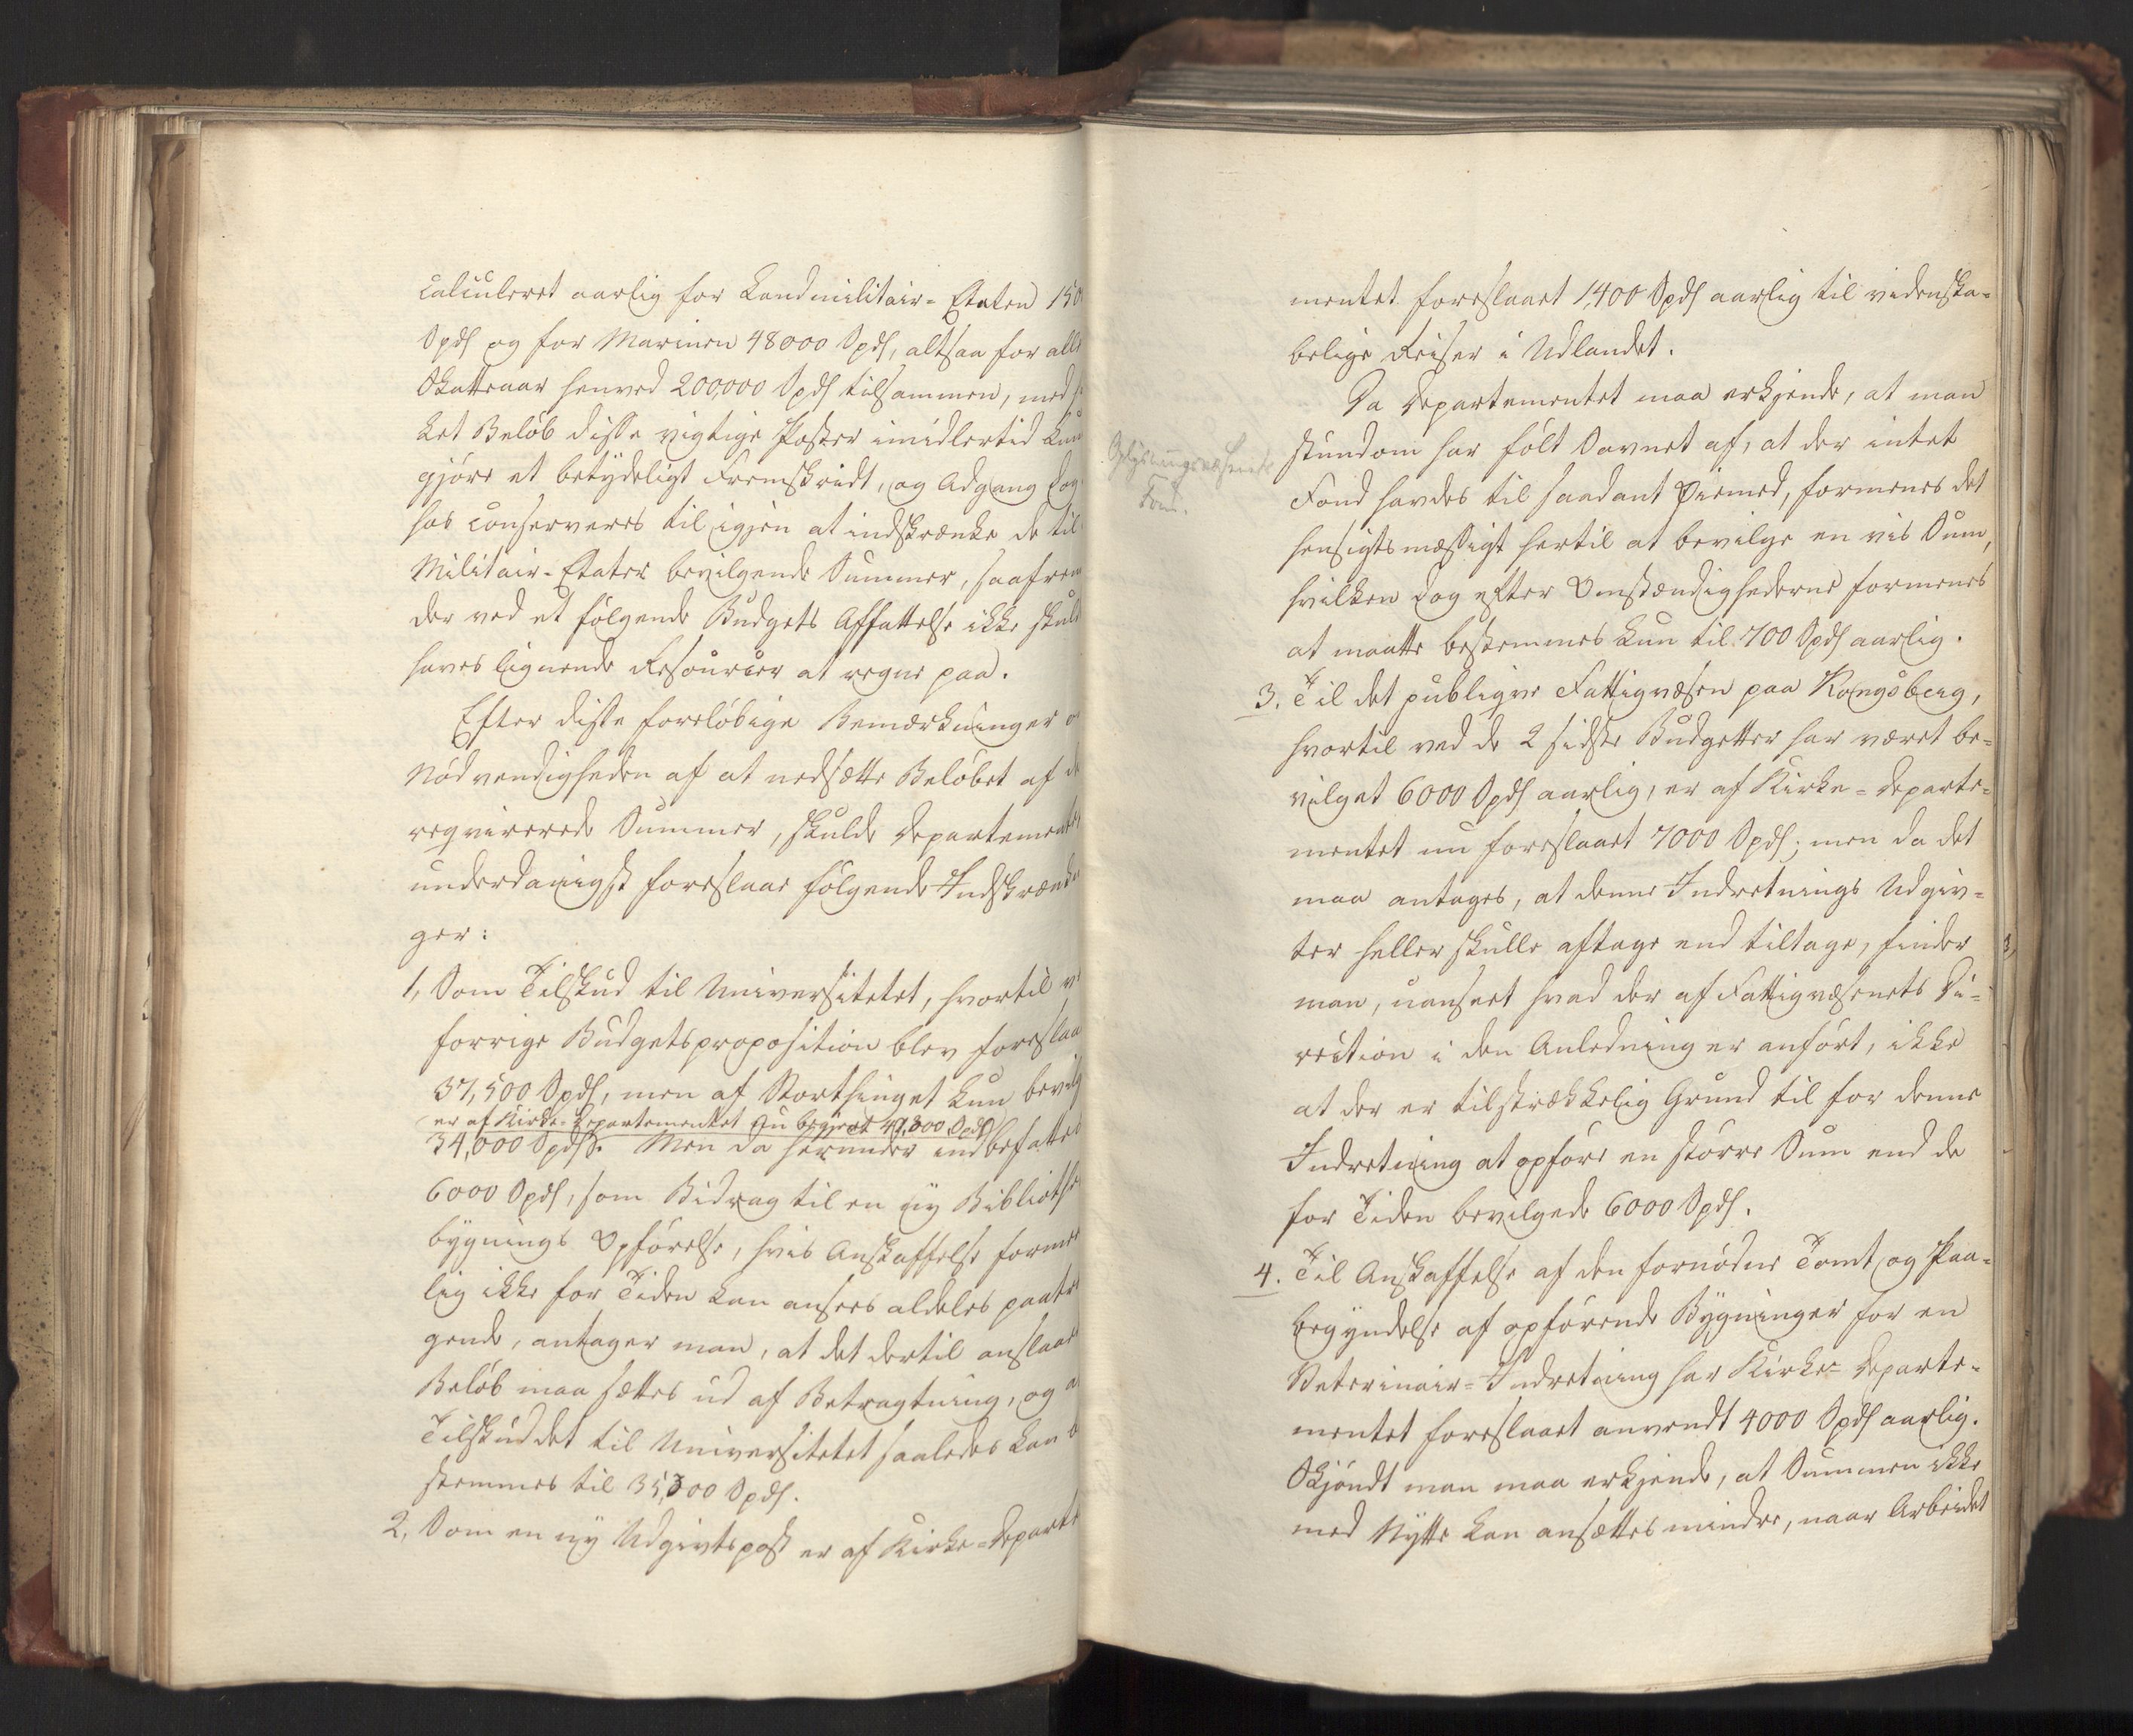 calculeret aarlig for Landmilitair-Etaten 150
Spds og for Marinen 48000 Spds, altsaa for alle
Skatteaar henved 200,000 Spds tilsammen, med
ket Beløb disse vigtige Poster imidlertid kun
gjøre et betydeligt Fremskridt, og Adgang dog
hos conserveres til igjen at indskrænke de til
Militair-Etater bevilgende Summer, saafrem
der ved et følgende Budgets Affattelse ikke skuld
haves lignende Resourcer at regne paa.
Efter disse foreløbige Bemærkninger o
Nødvendigheden af at nedsætte Beløbet af de
reqvirerede Summer, skulde Departementet
underdanigst foreslaae følgende Indskrænk
ger:
1, Som Tilskud til Universitetet, hvortil v
forrige Budgetsproposition blev foreslaa
37,500 Spds, men af Storthinget kun bevilg
er af Kirke-Departementet nu begjært 41,800 Spds
34,000 Spds. Men da herunder indbefattes
6000 Spds, som Bidrag til en ny Biblioth
bygnings Opførelse, hvis Anskaffelse formee
lig ikke for Tiden kan ansees aldeles paatræ
gende, antager man, at det dertil anslaae
Beløb maa sættes ud af Betragtning, og a
Tilskuddet til Universitetet saaledes kan b
stemmes til 35,800 Spds.
2, Som en ny Udgivtspost er af Kirke-Departe
mentet foreslaaet 1,400 Spds aarlig til videnska-
belige Reiser i Udlandet.
Da Departementet maa erkjende, at man
stundom har følt Savnet af, at der intet
Oplysningsvæsenets
Fond.
Fond havdes til saadant Øiemed, formenes det
hensigtsmæssigt hertil at bevilge en vis Sum,
hvilken dog efter Omstændighederne formenes
at maatte bestemmes kun til 700 Spds aarlig.
3. Til det publiqve Fattigvæsen paa Kongsberg,
hvortil ved de 2 sidste Budgetter har været be-
vilget 6000 Spds aarlig, er af Kirke-Departe-
mentet nu foreslaaet 7000 Spds; men da det
maa antages, at denne Indretnings Udgiv-
ter heller skulle aftage end tiltage, finder
man, uanseet hvad der af Fattigvæsenets Di-
rection i den Anledning er anført, ikke
at der er tilstrækkelig Grund til for denne
Indretning at opføre en større Sum end de
for Tiden bevilgede 6000 Spds.
4. Til Anskaffelse af den fornødne Tomt og Paa-
begyndelse af opførende Bygninger for en
Veterinair-Indretning har Kirke-Departe-
mentet foreslaaet anvendt 4000 Spds aarlig.
Skjøndt man maa erkjende, at Summen ikke
med Nytte kan ansættes mindre, naar Arbeidet